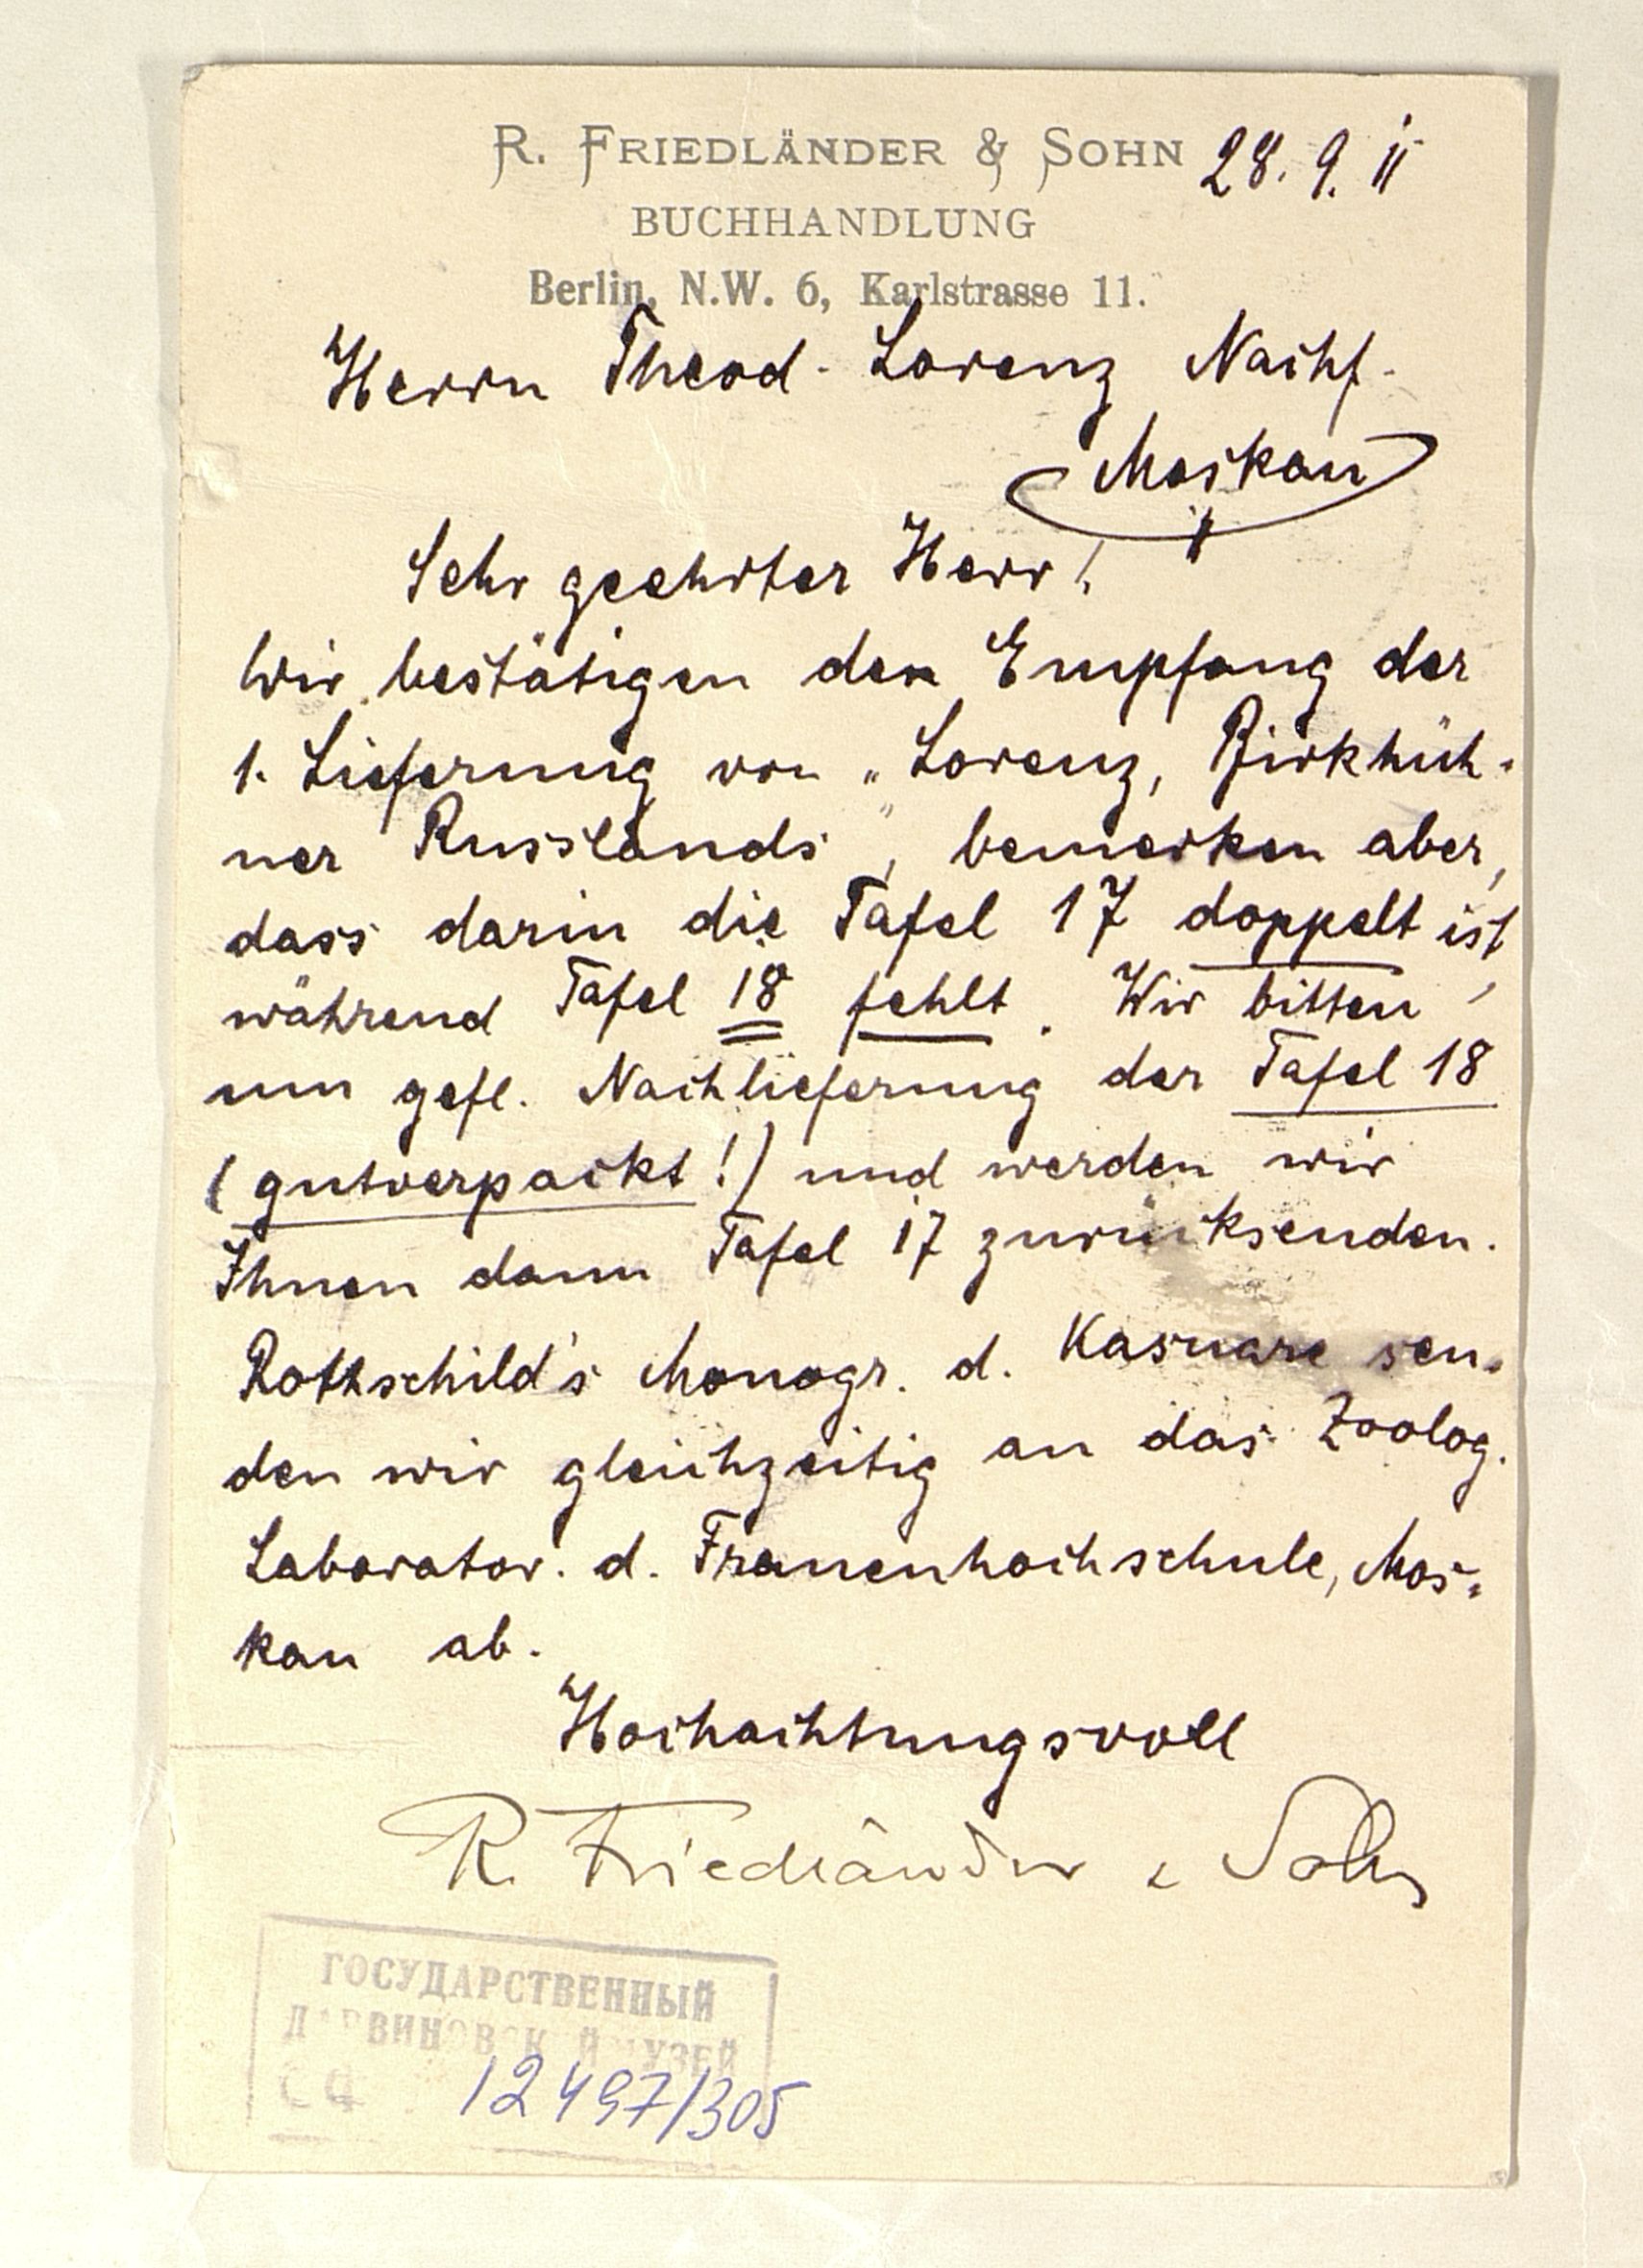 R. FRIEDLÄNDER & SOHN 28. 9. 11
BUCHHANDLUNG
Berlin, N.W. 6, Karlstrasse 11.
Herrn Theod. Lorenz Nachf.
Moskau
Sehr geehrter Herr!
Wir bestätigen den Empfang der
1. Lieferung von „Lorenz, Birkhüh-
ner Russlands", bemerken aber,
dass darin die Tafel 17 doppelt ist,
während Tafel 18 fehlt. Wir bitten
um gefl. Nachlieferung der Tafel 18
(gutverpackt!) und werden wir
Ihnen dann Tafel 17 zurücksenden.
Rothschild's Monogr. d. Kasuare sen-
den wir gleichzeitig an das Zoolog.
Laborator. d. Frauenhochschule, Mos-
kau ab.
Hochachtungsvoll
R. Friedländer & Sohn
ГОСУДАРСТВЕННЫЙ
ДАРВИНОВСКИЙ МУЗЕЙ
12497/305